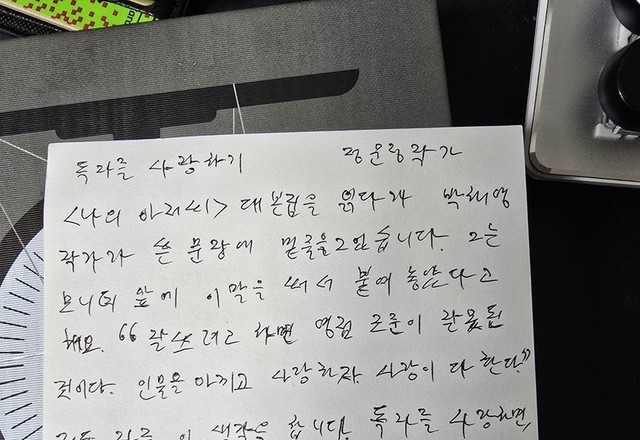 독자를 사랑하기 정문정작가
<나의 아저씨> 대본집을 읽다가 박해영
작가가 쓴 문장에 밑줄을 그었습니다. 그는
모니터 앞에 이 말을 써서 붙여 놓았다고
해요. "잘 쓰려고 하면 영점 조준이 잘못된
것이다. 인물을 아끼고 사랑하자. 사랑이 다 한다."
생각을 합니다. 독자를 사랑하면,